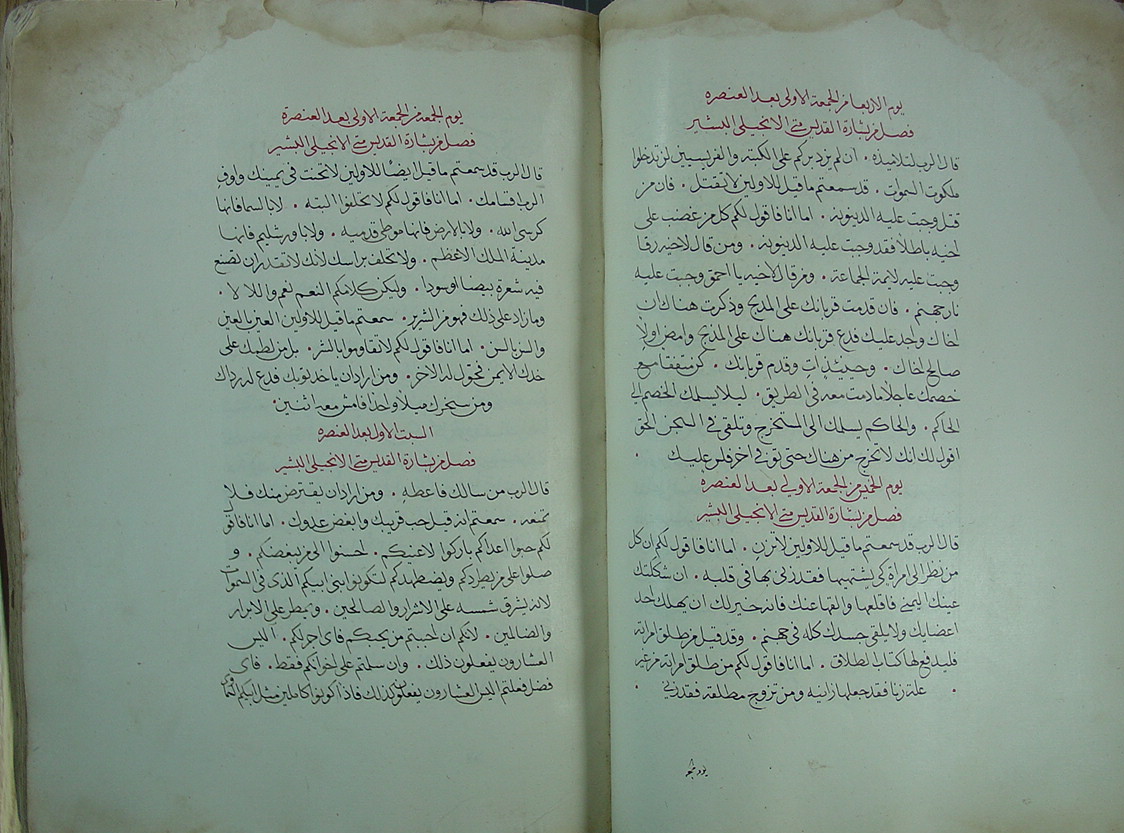 يوم الاربعا من الجمعة الاولى بعد العنصره
فصل من بشارة القديس متى الانجيلى البشير
قال الرب لتلاميذه . ان لم يزد بركم على الكتبه والفريسيين لن تدخلوا
ملكوت السموات . قد سمعتم ما قيل للاولين لا تقتل . فان من
قتل وجبت عليه الدينونه . اما انا فاقول لكم كل من غضب على
اخيه باطلاً فقد وجبت عليه الدينونه . ومن قال لاخيه رقا
وجبت عليه لايمة الجماعة . ومن قال لاخيه يا احمق وجبت عليه
نار جهنم . فان قدمت قربانك على المذبح وذكرت هناك ان
اخاك وجد عليك فدع قربانك هناك على المذبح وامض اولا
صالح اخاك . وحينئذٍ ات وقدم قربانك . كن متفقا مع
خصمك عاجلاً ما دمت معه فى الطريق . ليلا يسلمك الخصم الى
الحاكم . والحاكم يسلمك الى المستخرج وتلقى فى السجن الحق
اقول لك انك لا تخرج من هناك حتى توفى اخر فلس عليك .
يوم الخميس من الجمعة الاولي بعد العنصره
فصل من بشارة القديس متى الانجيلى البشير
قال الرب قد سمعتم ما قيل للاولين لا تزن . اما انا فاقول لكم ان كل
من نظر الى امراة كى يشتهيها فقد زنى بها فى قلبه . ان شككتك
عينك اليمنى فاقلعها والقها عنك فانه خير لك ان يهلك احد
اعضايك ولا يلقى جسدك كله فى جهنم . وقد قيل من طلق امراته
فليدفع لها كتاب الطلاق . اما انا فاقول لكم من طلق امراته من غير
. علة زنا فقد جعلها زانيه ومن تزوج مطلقة فقد زنى .
يوم الجمعه من الجمعة الاولى بعد العنصرة
فصل من بشارة القديس متى الانجيلى البشير
قال الرب قد سمعتم ما قيل ايضًا للاولين لا تحنث فى يمينك واوفِ
الرب قسامك . اما انا فاقول لكم لا تحلفوا البته . لا بالسما فانها
كرسى الله . ولا بالارض فانها موطى قدميه . ولا باورشليم فانها
مدينة الملك الاعظم . ولا تحلف براسك لانك لا تقدر ان تصنع
فيه شعرة بيضا او سودا . وليكن كلامكم النعم نعم واللا لا .
وما زاد على ذلك فهو من الشرير . سمعتم ما قيل للاولين العين بالعين
والسن بالسن . اما انا فاقول لكم لا تقاوموا بالشر . بل من لطمك على
خدك الايمن فحول له الاخر . ومن اراد ان ياخد ثوبك فدع له رداك
ومن سخرك ميلاً واحدًا فامش معه اثنين .
السبت الاول بعد العنصره
فصل من بشارة القديس متى الانجيلى البشير
قال الرب من سالك فاعطه . ومن اراد ان يقترض منك فلا
تمنعه . سمعتم انه قيل حب قريبك وابغض عدوك . اما انا فاقول
لكم حبوا اعداكم باركوا لاعنيكم . احسنوا الى من يبغضكم . و
صلوا على من يطردكم ويضطهدكم لتكونوا بنى ابيكم الذى فى السموات
لانه يشرق شمسه على الاشرار والصالحين . ويمطر على الابرار
والضالمين . لانكم ان احببتم من يحبكم فاى اجر لكم . اليس
العشارون يفعلون ذلك . وان سلمتم على اخوانكم فقط . فاي
فضل فعلتم اليس العشارون يفعلون كذلك فاذًا كونوا كاملين مثل ابيكم